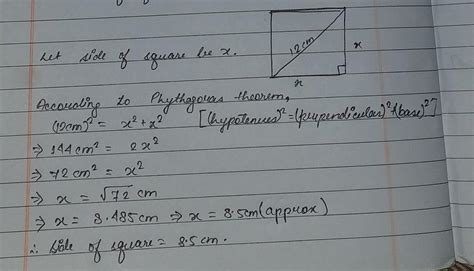 12cm
x
x
Let side of square be x.
According to Phythagorus theorem,
(12cm)² = x² + x² [(hypotenus)² = (perpendicular)² + (base)²]
⇒ 144cm² = 2x²
⇒ 72cm² = x²
⇒ x = √72 cm
⇒ x = 8.485cm ⇒ x = 8.5cm (approx)
∴ Side of square = 8.5cm.